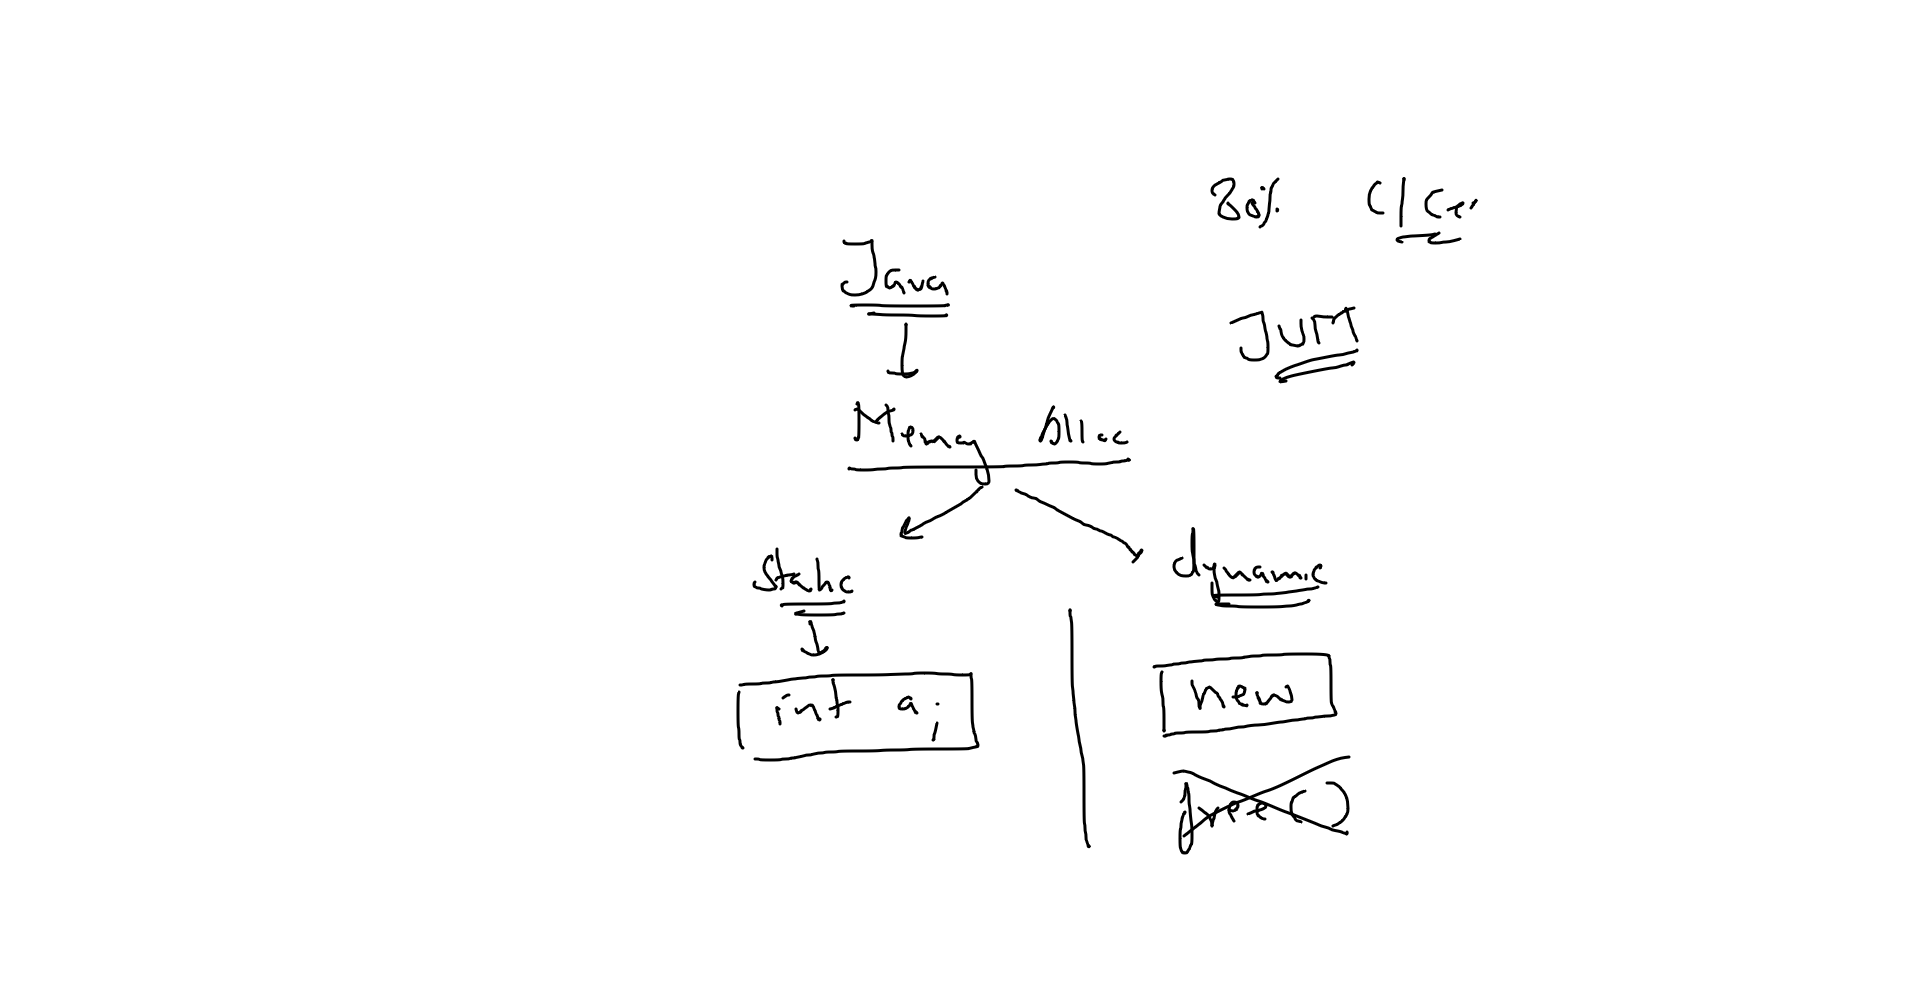 80% C/C++
Java
JVM
Memory Alloc
Static
dynamic
int a;
new
free()